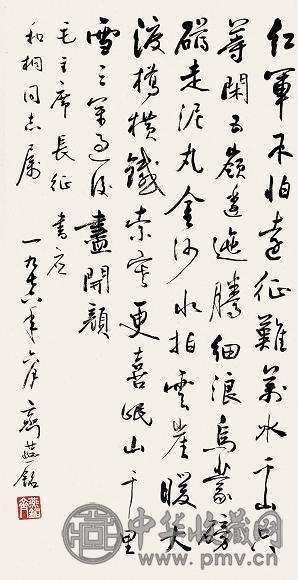 红軍不怕遠征難萬水千山只
等閑五嶺逶迤騰細浪烏蒙磅
礴走泥丸金沙水拍雲崖暖大
渡橋橫鐵索寒更喜岷山千里
雪三軍過後盡開顏
毛主席長征 書应
和桐同志属
一九 年 月 齊燕銘
中华收藏网
www.pmv.cn